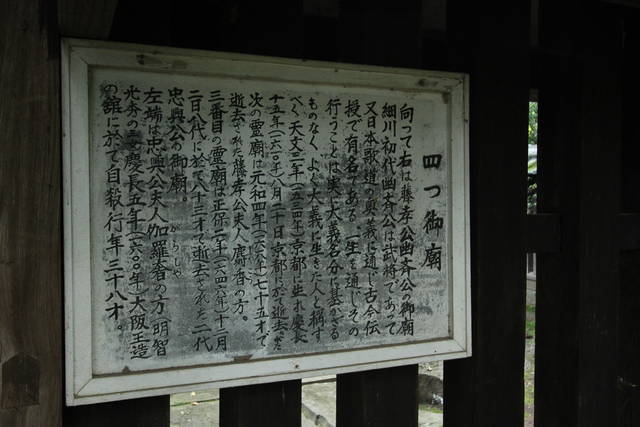 四つ御廟
向って右は藤孝公幽斉公の御廟
細川初代幽斉公は武将であって
又日本歌道の奥義に通じ古今伝
授で有名である 一生を通じその
行うことは実に大義名分に基かざる
ものなく、よく大義に生きた人と称す
べく天文三年(一五三四年)京都に生れ慶長
十五年(一六一〇年)八月二十日京都に於て逝去さる
次の霊廟は元和四年(一六一八年)七十五才で
逝去された藤孝公夫人麝香の方。
三番目の霊廟は正保二年(一六四五年)十二月
二日八代に於て八十三才で逝去された二代
忠興公の御廟。
左端は忠興公夫人伽羅奢の方 明智
がらしや
光秀の 慶長五年(一六〇〇年)大阪玉造
の館に於て自殺行年三十八才。